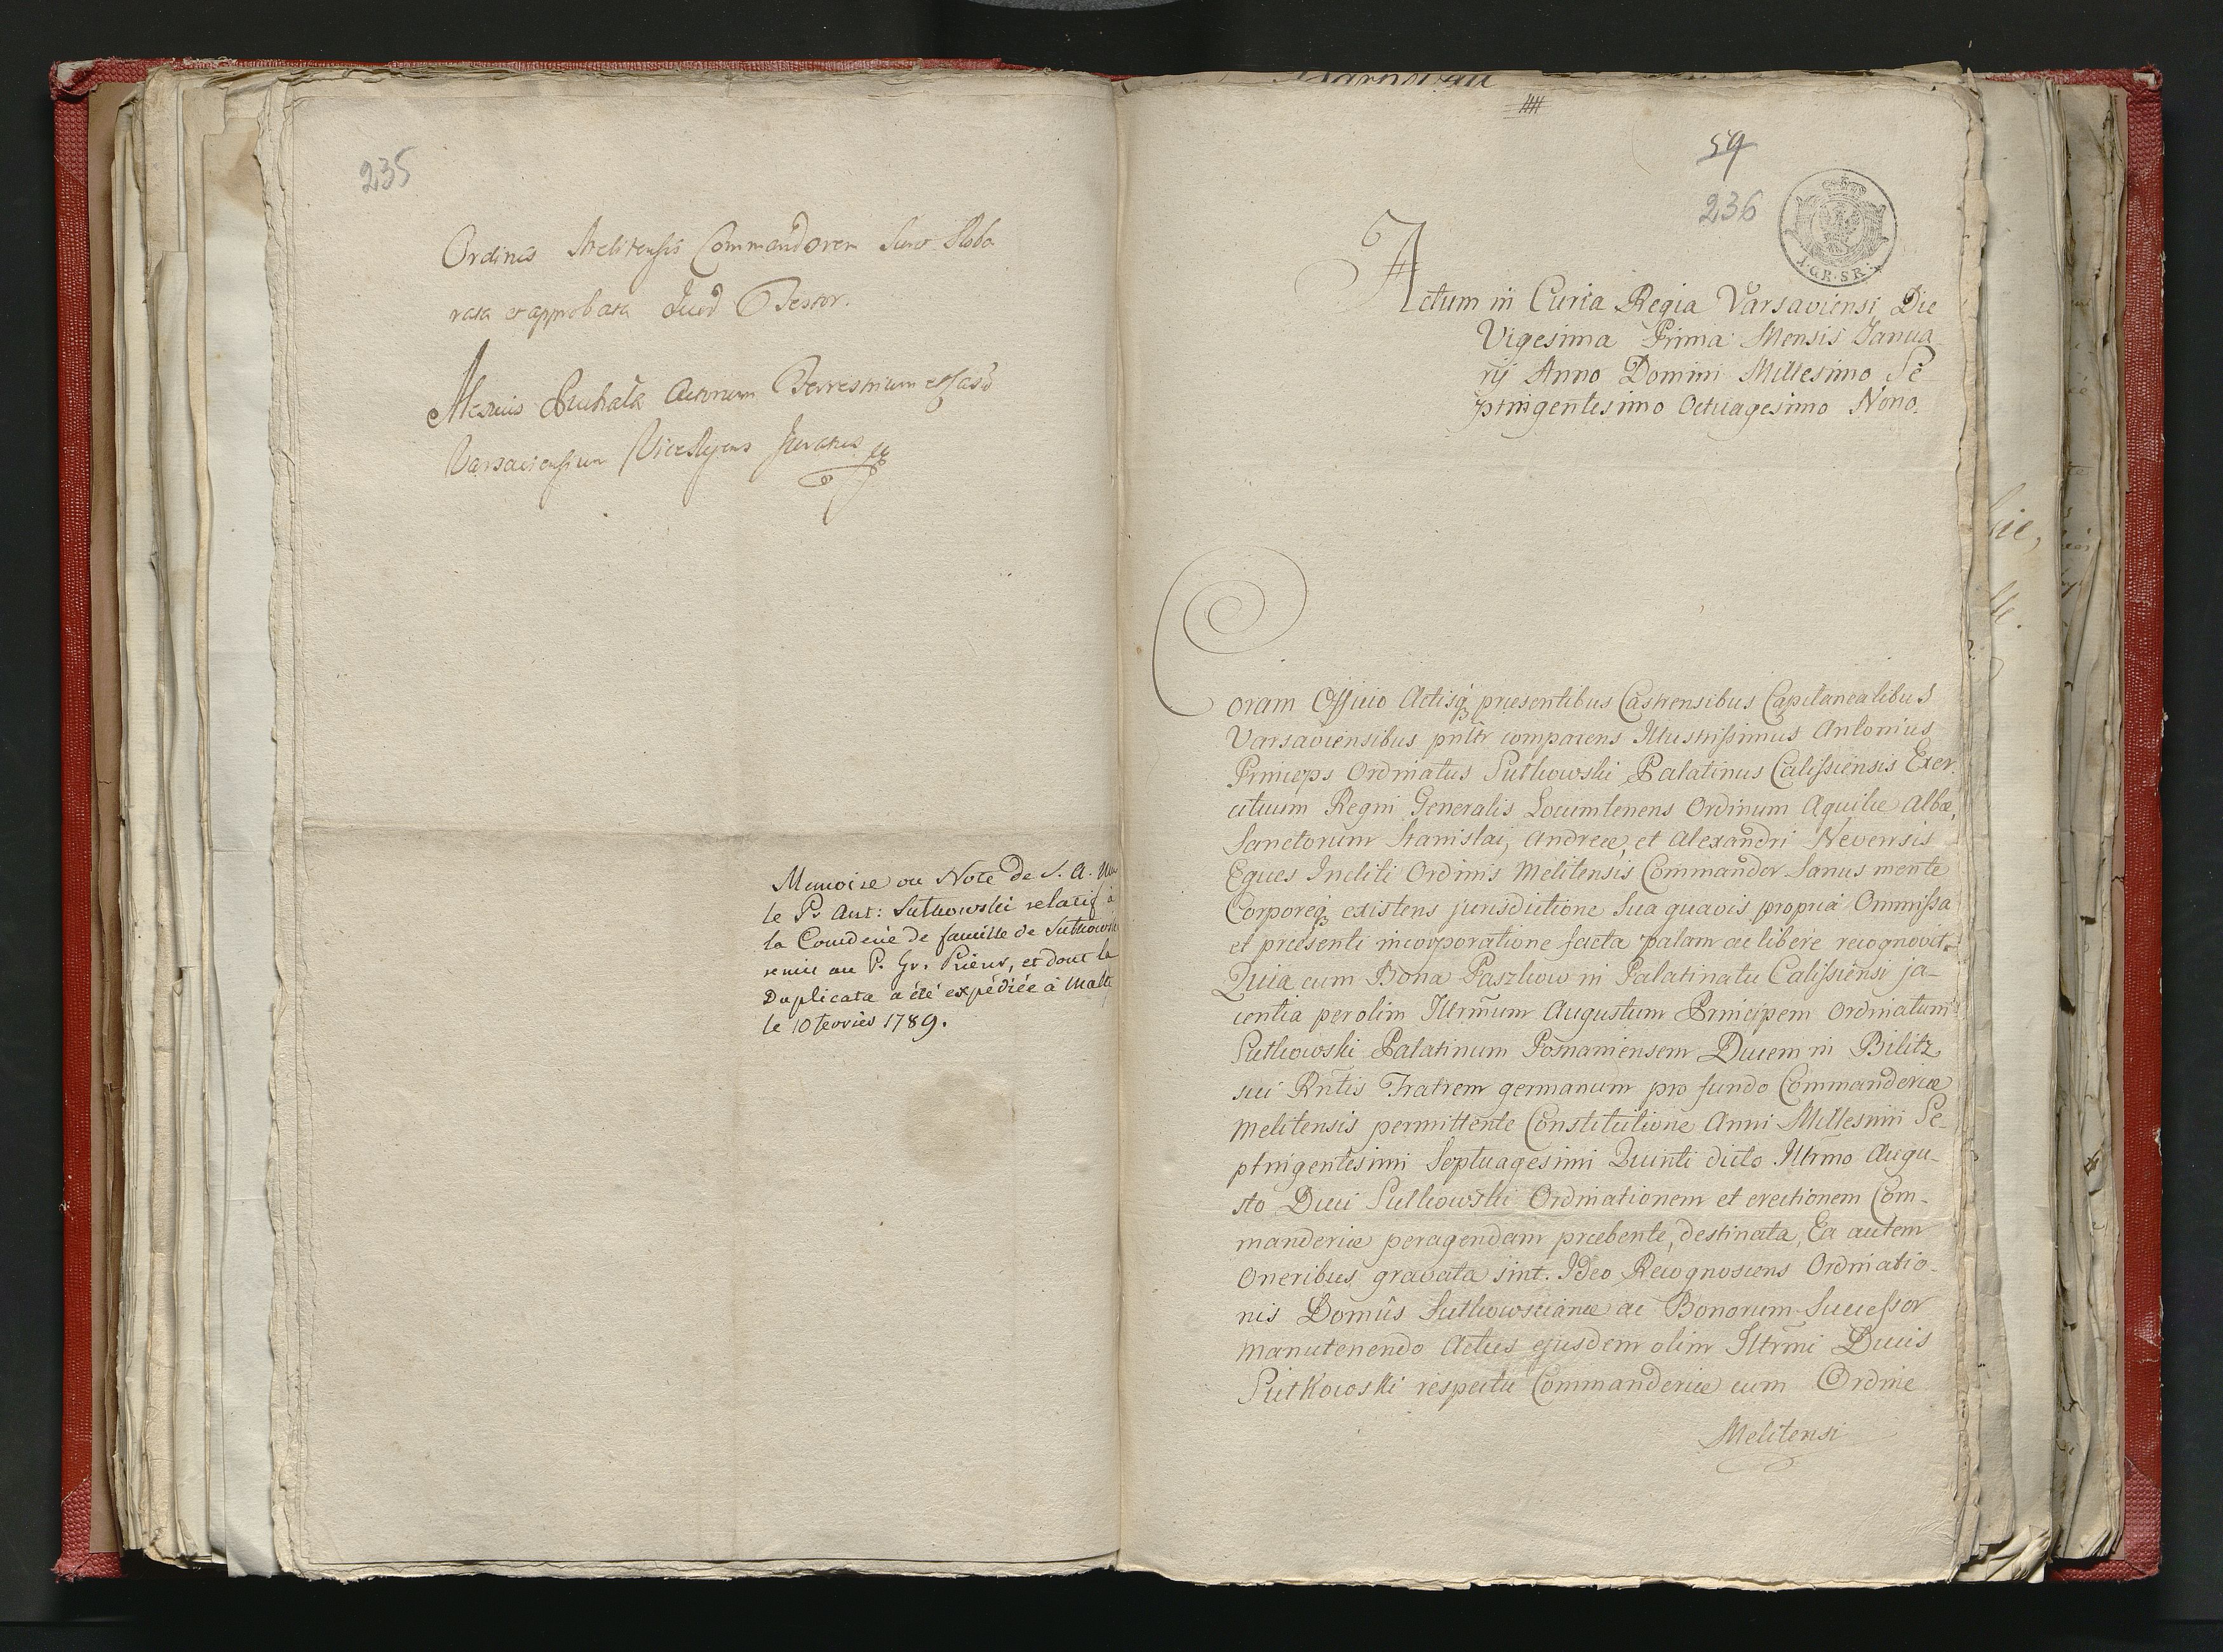 235
Ordinis Melitensis Commandorem sunt Robo
rata et approbata Quod Testor.
Actorum Terrestrium et Castr
Varsaviensium ViceRegens Juratus
Memoire ou Note de S. A. Mr
le Pr Ant: Sulkowski relatif à
la Comderie de famille de Sulkowski
remis au P. Gr. Prieur, et dont la
Duplicata a été expédiée à Malte
le 10 fevrier 1789.
59
236
1·GR·SR·
Actum in Curia Regia Varsaviensi Die
Vigesima Prima Mensis Janua
rij Anno Domini Millesimo Se
ptingentesimo Octuagesimo Nono.
Coram Officio Actisq3 praesentibus Castrensibus Capitanealibus
Varsaviensibus pnltr comparens Illustrissimus Antonius
Princeps Ordinatus Sulkowski Palatinus Calissiensis Exer-
cituum Regni Generalis Locumtenens Ordinum Aquilae Albae,
Sanctorum Stanislai, Andreae, et Alexandri Nevensis
Eques Incliti Ordinis Melitensis Commandor Sanus mente
Corporeq3 existens jurisdictione sua quavis propria Ommissa
et praesenti incorporatione facta palam ac libere recognovit.
Quia cum Bona Paszkow in Palatinatu Calissiensi ja-
centia per olim Illrmum Augustum Principem Ordinatum
Sulkowski Palatinum Posnaniensem Ducem in Bilitz
sui Rntis Fratrem germanum pro fundo Commanderiae
Melitensis permittente Constitutione Anni Millesimi Se-
ptingentesimi Septuagesimi Quinti dicto Illrmo Augu-
sto Duci Sulkowski Ordinationem et erectionem Com-
manderiae peragendam praebente, destinata, Ea autem
Oneribus gravata sint. Ideo Recognoscens Ordinatio-
nis Domûs Sulkowscianae ac Bonorum Successor
manutenendo Actus ejusdem olim Illrmi Ducis
Sulkowski respectu Commanderiae cum Ordine
Melitensi